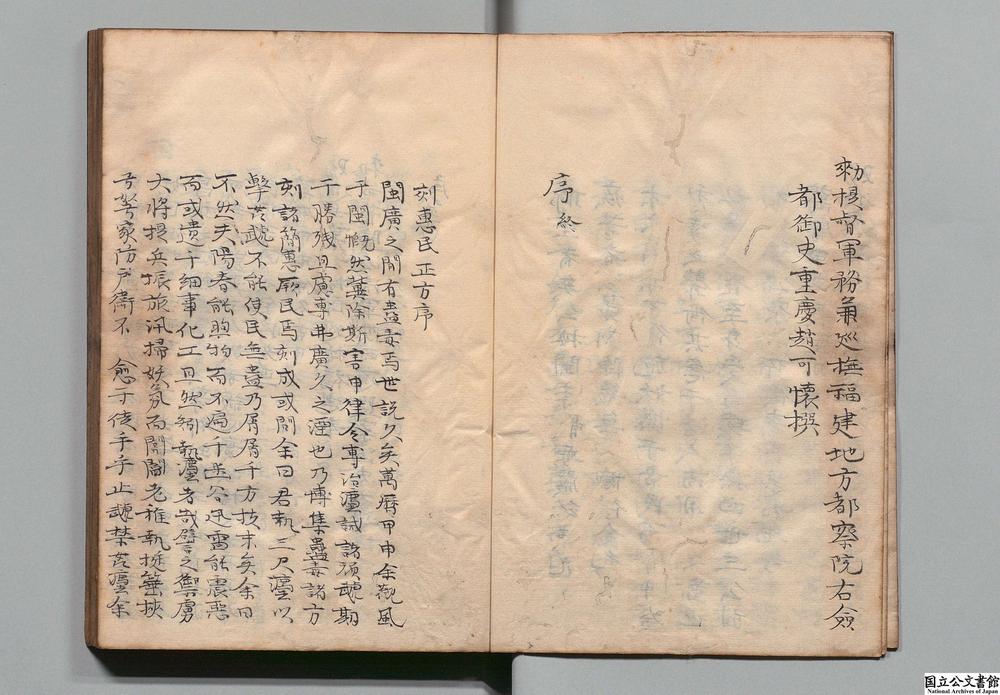 勑提督軍務兼巡撫福建地方都察院右僉
都御史重慶趙可懷撰
序終
刻惠民正方序
閩廣之間有蠱毒焉世說久矣萬曆甲申余觀風
于閩慨然冀除斯害申律令專治灋誡諸碩醜期
于勝殘且慮專弗廣久之湮也乃博集蠱毒諸方
刻諸簡惠厥民焉刻成或問余曰君執三尺灋以
擊 醜不能使民無蠱乃屑屑于方技末矣余曰
不然夫陽春能煦物而不遍于幽谷迅雷能震惡
而或遺于細事化工且然矧執灋者哉譬之禦虜
大將提兵振旅汛掃妖氛而閭閻老稚執挺箠挾
弓弩家防戶衛不 愈于徒手乎止 禁 灋余
国立公文書館
National Archives of Japan